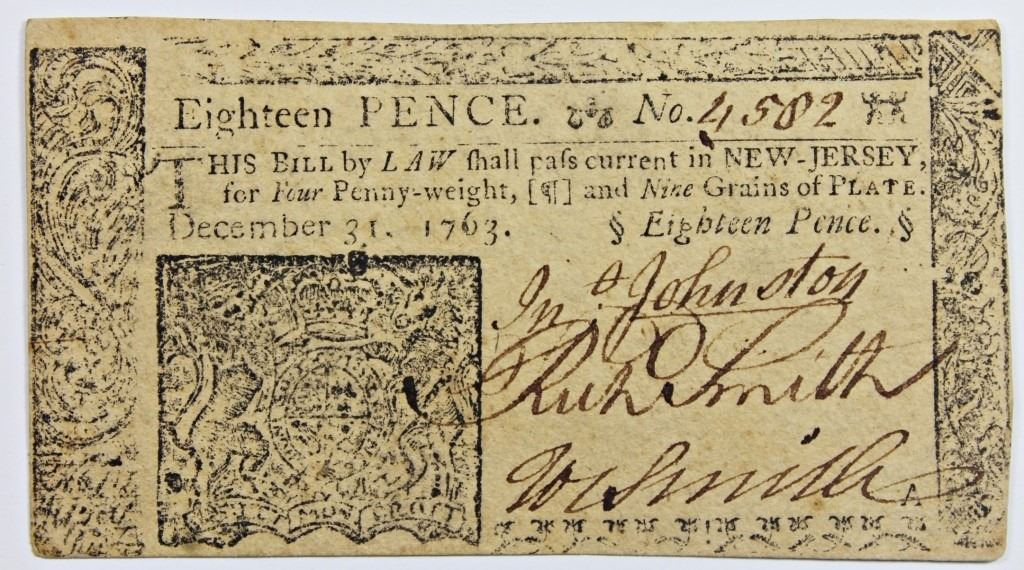 Eighteen PENCE. No. 4582
THIS BILL by LAW ſhall paſs current in NEW-JERSEY,
for Four Penny-weight, [¶] and Nine Grains of PLATE.
December 31. 1763. § Eighteen Pence. §
Jnº Johnston
Richd Smith
Wm Smith
A
ET MON DROIT